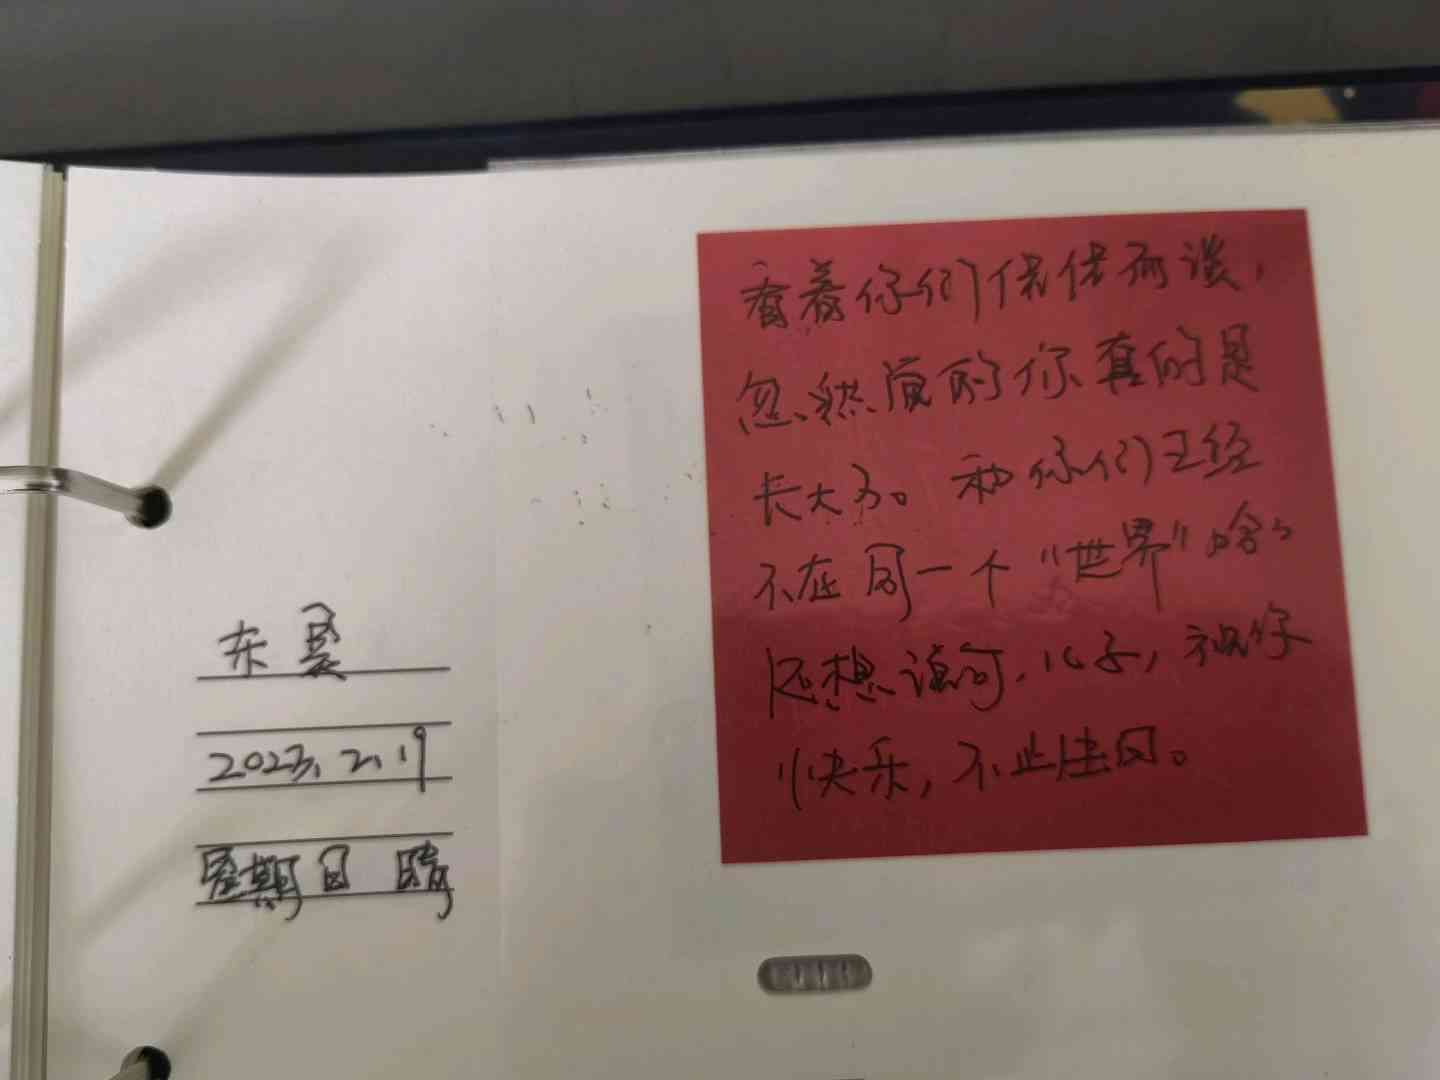 东昃
2023.2.19
星期日 晴
看着你们侃侃而谈，
忽然间的你真的是
长大了。和你们已经
不在同一个“世界”啥。
还想说句，儿子，祝你
快乐，不止生日。